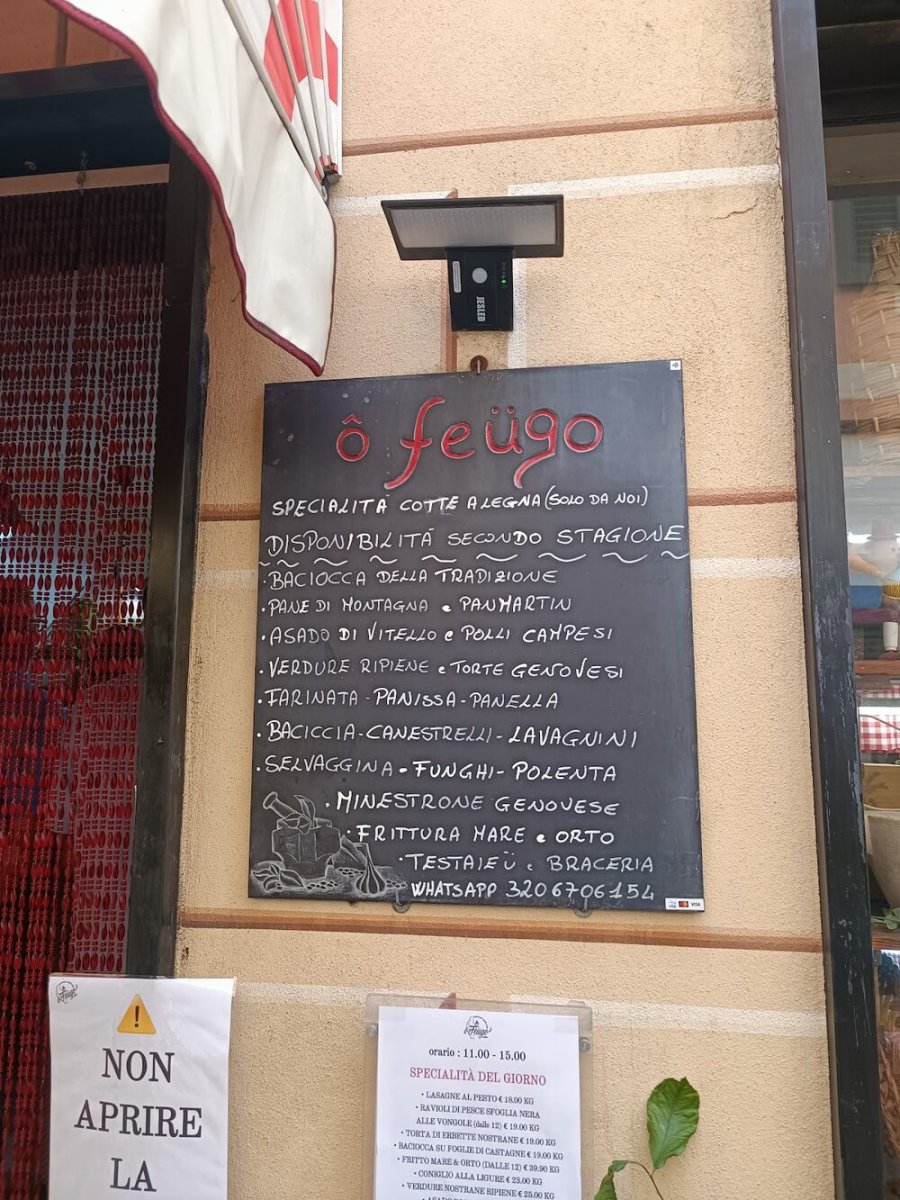 JESLED
ô feügo
SPECIALITÀ COTTE A LEGNA (SOLO DA NOI)
DISPONIBILITÀ SECONDO STAGIONE
· BACIOCCA DELLA TRADIZIONE
· PANE DI MONTAGNA e PANMARTIN
· ASADO DI VITELLO e POLLI CAMPESI
· VERDURE RIPIENE e TORTE GENOVESI
· FARINATA - PANISSA - PANELLA
· BACICCIA - CANESTRELLI - LAVAGNINI
· SELVAGGINA - FUNGHI - POLENTA
· MINESTRONE GENOVESE
· FRITTURA MARE e ORTO
· TESTAIEÜ e BRACERIA
WHATSAPP 3206706154
VISA
NON
APRIRE
LA
ô feügo
orario : 11.00 - 15.00
SPECIALITÀ DEL GIORNO
• LASAGNE AL PESTO € 18.00 KG
• RAVIOLI DI PESCE SFOGLIA NERA
ALLE VONGOLE (dalle 12) € 19.00 KG
• TORTA DI ERBETTE NOSTRANE € 19.00 KG
• BACIOCCA SU FOGLIE DI CASTAGNE € 19.00 KG
• FRITTO MARE & ORTO (DALLE 12) € 39.90 KG
• CONIGLIO ALLA LIGURE € 23.00 KG
• VERDURE NOSTRANE RIPIENE € 25.00 KG